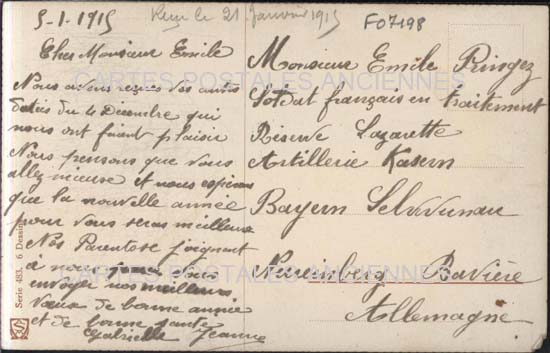 5-1-1915
Reçu le 21 Janvier 1915
F07498
Cher Monsieur Emile
Nous avons reçues vos amités
datées du 4 Décembre qui
nous ont faient plaisir
Nous pensons que vous
allez mieuse et nous espérons
que la nouvelle année
pour vous seras meilleure
Nos Parents se joignent
à nous pour vous
envoyer nos meilleurs
vœux de bonne année
et de bonne santé
Gabrielle Jeanne
Monsieur Emile
Soldat français en traitement
Réserve Lazarette
Artillerie Kasern
Bayern
Nuremberg Bavière
Allemagne
CARTES POSTALES ANCIENNES
CARTES POSTALES ANCIENNES
Serie 483. 6 Dessins